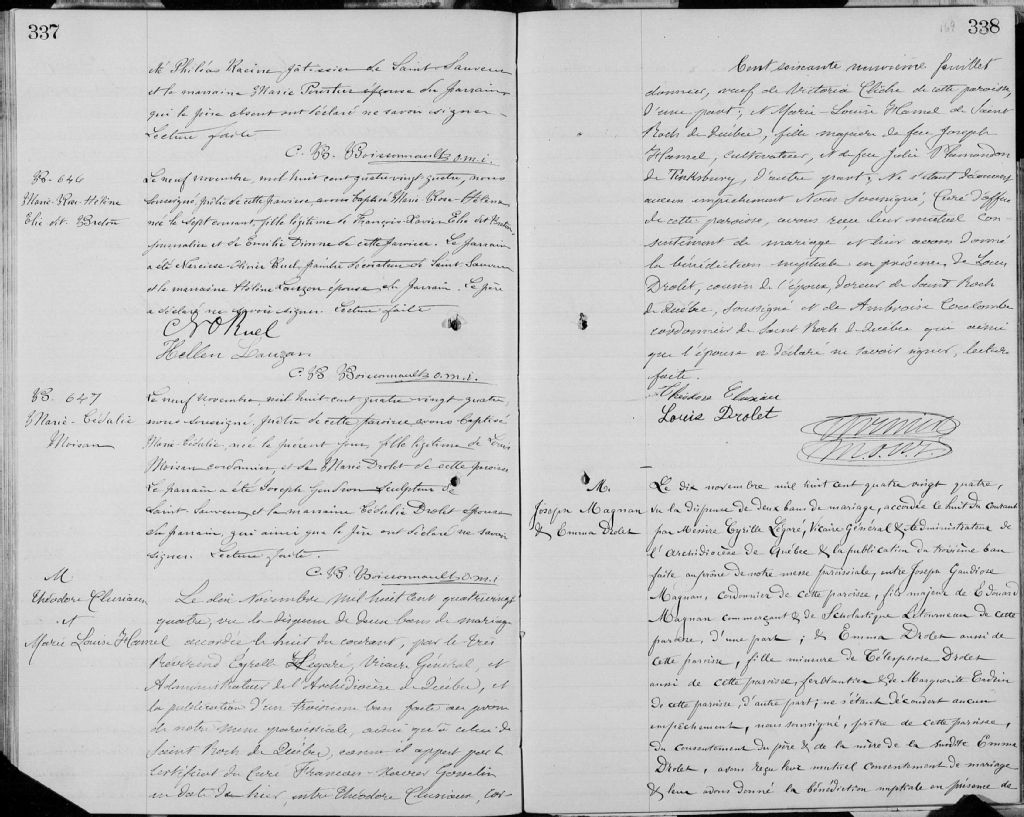 337
été Philéas Racine pâtissier de Saint-Sauveur
et la marraine Marie épouse du parrain
qui le père absent ont déclaré ne savoir signer
Lecture faite
C. B. Boissonnault o.m.i.
B. 646
Marie-Rose-Hélène
Elie dit Breton
Le neuf novembre, mil huit cent quatre vingt quatre, nous
soussigné, prêtre de cette paroisse, avons baptisé Marie-Rose-Hélène
née le sept courant, fille légitime de François-Xavier Elie dit Breton
journalier et de Emilie Dionne de cette paroisse. Le parrain
a été Narcisse-Olivier Ruel, peintre décorateur de Saint-Sauveur
et la marraine Hélène Lauzon épouse du parrain. Le père
a déclaré ne savoir signer. Lecture faite
N O Ruel
Hellen Lauzon
C. B. Boissonnault o.m.i.
B. 647
Marie-Cédulie
Moisan
Le neuf novembre, mil huit cent quatre vingt quatre,
nous soussigné, prêtre de cette paroisse avons baptisé
Marie-Cédulie, née le présent jour, fille légitime de Louis
Moisan cordonnier, et de Marie Drolet de cette paroisse
Le parrain a été Joseph Gendron sculpteur de
Saint-Sauveur et la marraine Cédulie Drolet épouse
du parrain, qui ainsi que le père ont déclaré ne savoir
signer. Lecture faite.
C. B. Boissonnault o.m.i
M
Théodore Cluseau
et
Marie Louise Hamel
Le dix Novembre mil huit cent quatrevingt
quatre, vu la dispense de deux bans de mariage
accordée le huit du courant, par le Très
Révérend Cyrille Légaré, Vicaire Général, et
Administrateur de l'Archidiocèse de Québec, et
la publication d'un troisième ban faite au prône
de notre messe paroissiale, ainsi qu'à celui de
Saint Roch de Québec, comme il appert par le
certificat du Curé François-Xavier Gosselin
en date de hier, entre Théodore Cluseau, cor-
169
338
Cent soixante neuvième feuillet
donnier, veuf de Victoria Cliche de cette paroisse,
d'une part; et Marie-Louise Hamel de Saint
Roch de Québec, fille majeure de feu Joseph
Hamel, cultivateur, et de feu Julie Plamondon
de , d'autre part; Ne s'étant découvert
aucun empêchement Nous soussigné, Curé d'office
de cette paroisse, avons reçu leur mutuel con-
sentement de mariage et leur avons donné
la bénédiction nuptiale en présence de Louis
Drolet, cousin de l'époux, doreur de Saint Roch
de Québec, soussigné et de Ambroise Cocolombe
cordonnier de Saint Roch de Québec qui ainsi
que l'épouse a déclaré ne savoir signer, lecture
faite.
Théodore Cluseau
Louis Drolet
M.
Joseph Magnan
& Emma Drolet
Le dix novembre mil huit cent quatre vingt quatre,
vu la dispense de deux bans de mariage, accordée le huit du courant
par Messire Cyrille Légaré, Vicaire Général & Administrateur de
l'Archidiocèse de Québec & la publication du troisième ban
faite au prône de notre messe paroissiale, entre Joseph Gaudiose
Magnan, cordonnier de cette paroisse, fils majeur de Edouard
Magnan commerçant & de Scholastique Létourneau de cette
paroisse, d'une part; & Emma Drolet aussi de
cette paroisse, fille mineure de Télesphore Drolet
aussi de cette paroisse, ferblantier & de Marguerite
de cette paroisse, d'autre part; ne s'étant découvert aucun
empêchement, nous soussigné, prêtre de cette paroisse,
du consentement du père & de la mère de la susdite Emma
Drolet, avons reçu leur mutuel consentement de mariage
& leur avons donné la bénédiction nuptiale en présence de